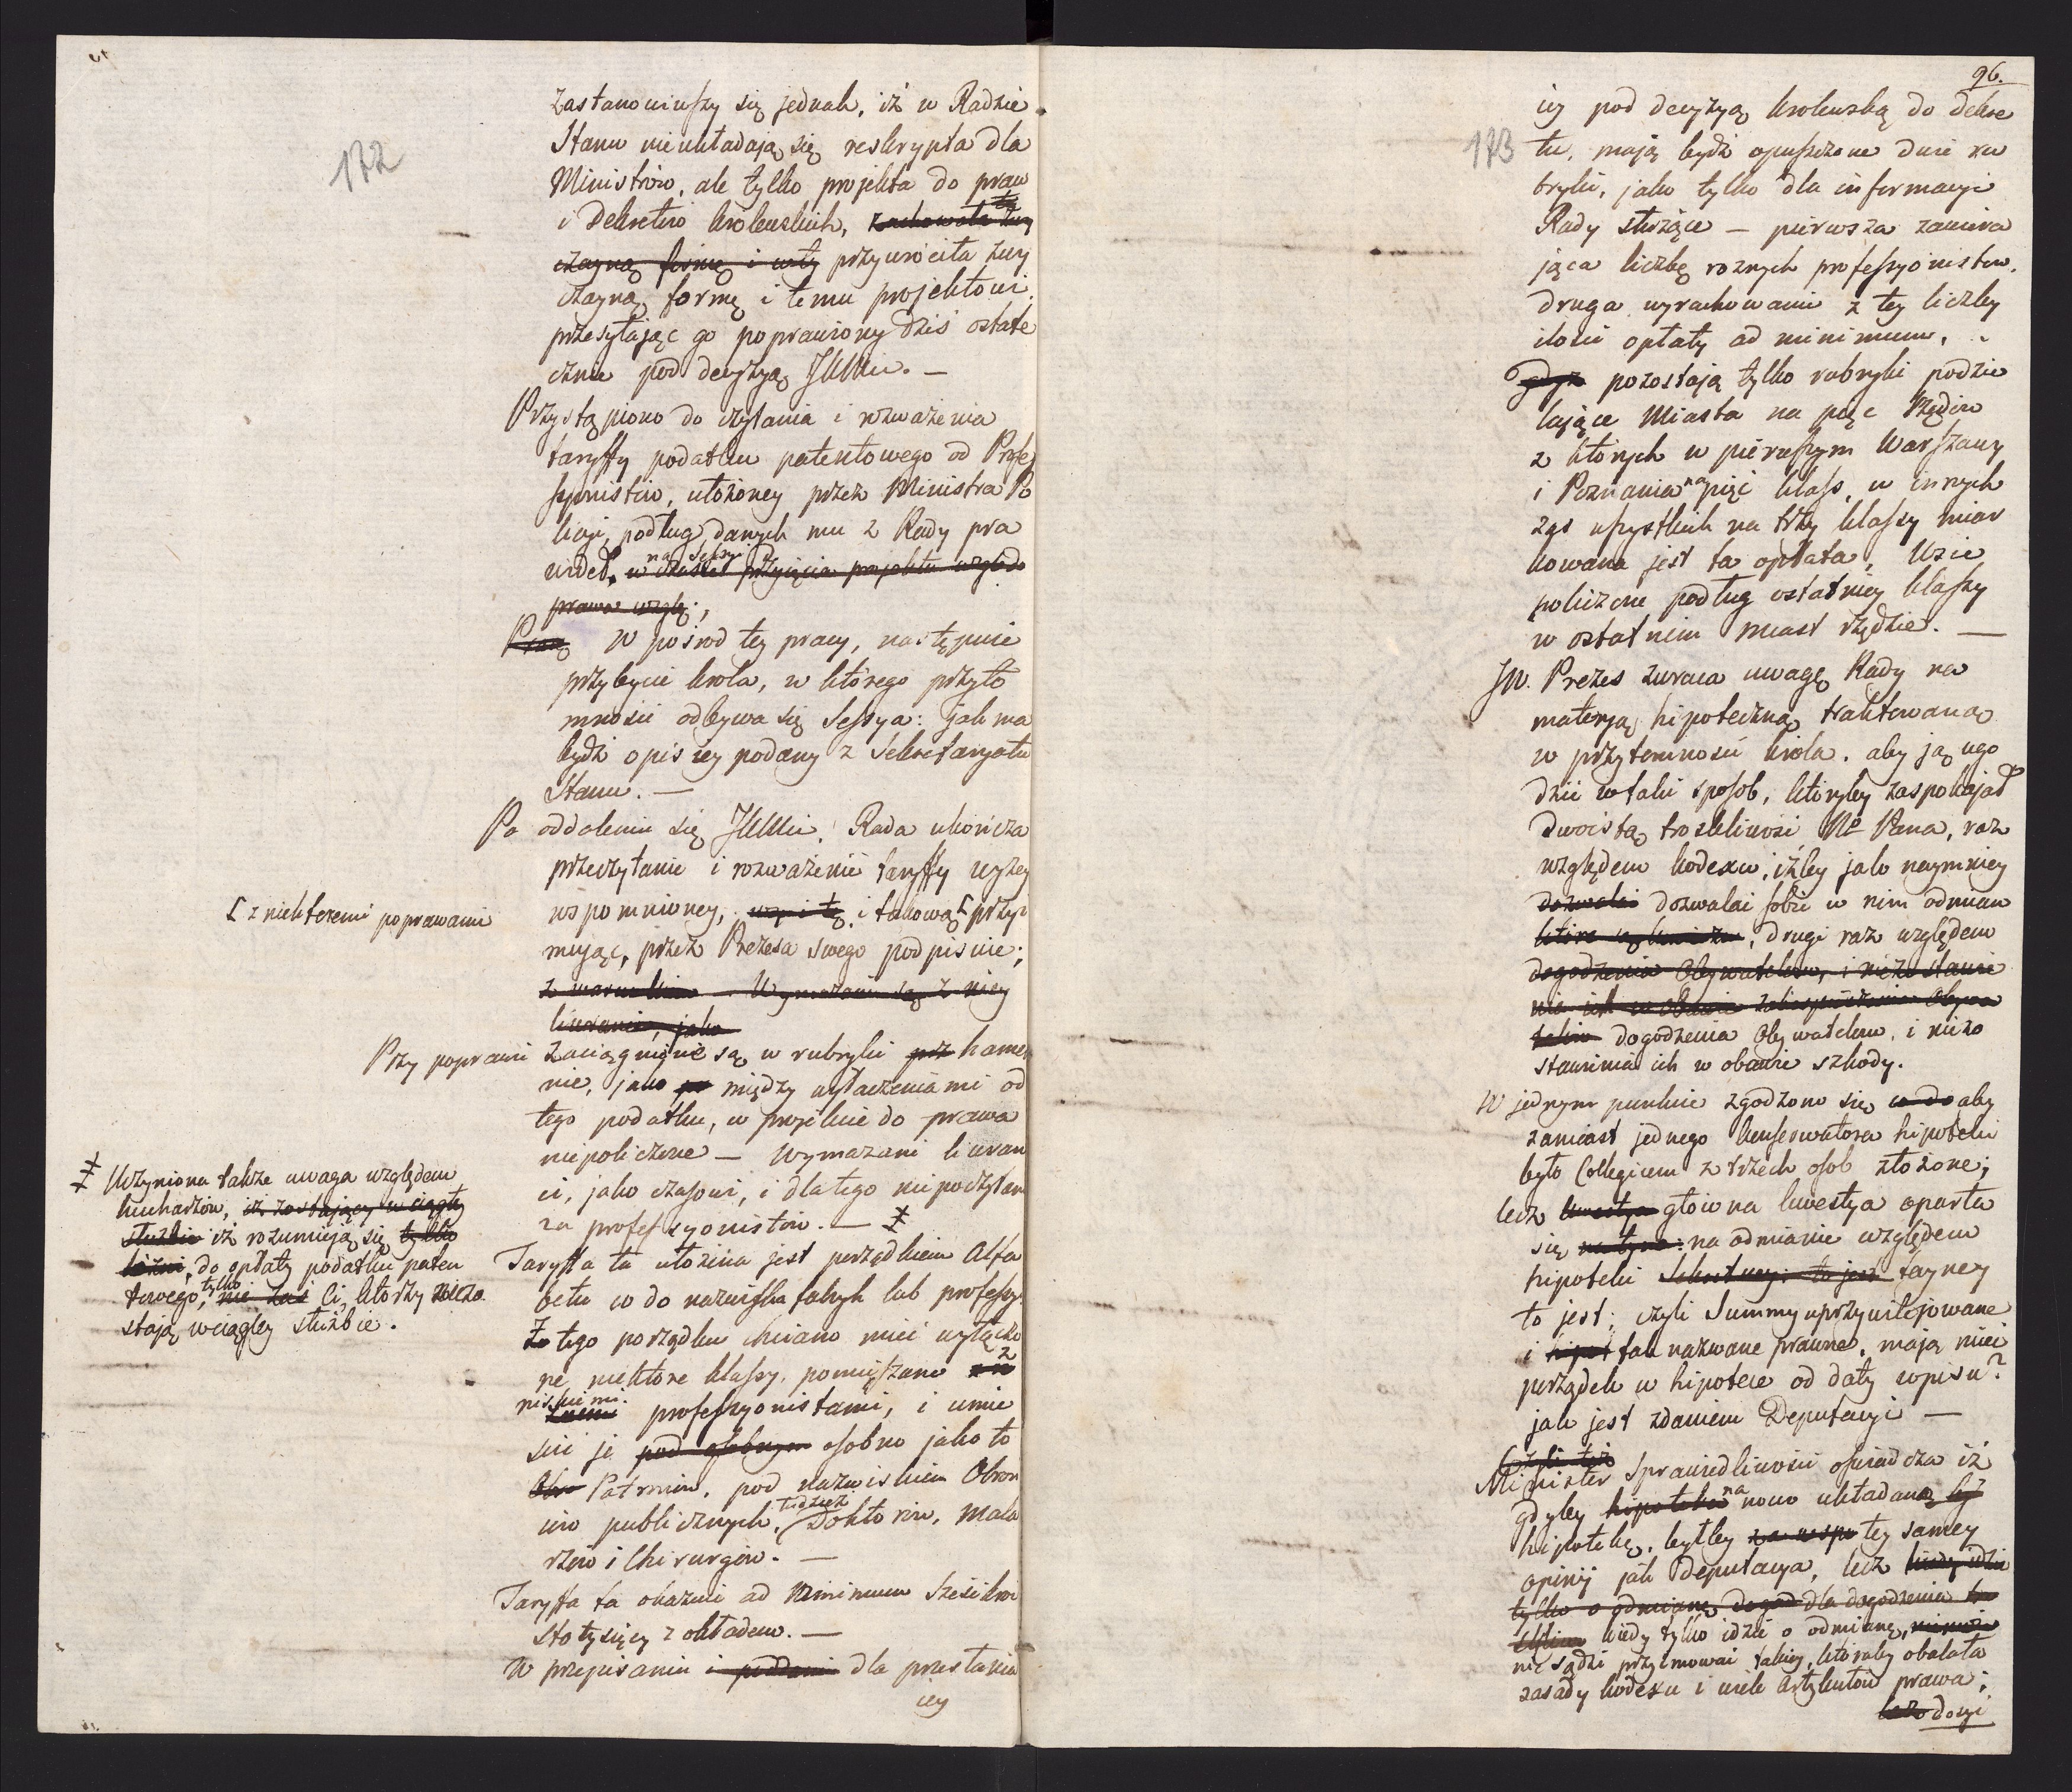 172
Zastanowiwszy się jednak, iż w Radzie
Stanu nieukładają się reskrypta dla
Ministrów, ale tylko projekta do praw
i Dekretów królewskich, zachowała zwy
czayną formę i przywróciła zwy
czayną formę i temu projektowi
przesyłając go poprawiony dziś ostate
cznie pod decyzyą JKMci. —
Przystąpiono do czytania i rozważenia
taryffy podatku patentowego od Profes
syonistów, ułożoney przez Ministra Po
licyi, podług danych mu z Rady pra
wideł, w na sessyi przyięcia projektu względe
prawa wzglę.,
W pośrod tey pracy, następuie
przybycie króla, w którego przyto
mności odbywa się Sessya: jak ma
bydź opis iey podany z Sekretaryatu
Stanu. —
Po oddaleniu się JKMci, Rada ukończa
przeczytanie i rozważenie taryffy wyżey
wspomnioney, i takową przyi
[ z niektoremi poprawami
mując, przez Prezesa swego podpisuie;
Wymazani są z niey
liweranci, jako
Przy poprawie zaciągnięne są w rubryki kamie
nie, jako między wyłączeniami od
tego podatku, w projekcie do prawa
niepoliczone — wymazani liweran
ci, jako czasowi, i dla tego niepoczytan
za professyonistów. — ‡
‡ Uczyniona także uwaga względem
kucharzów, iż zostający w ciągły
służbie iż rozumieją się tylko
do opłaty podatku paten
towego, tylko nie zaś ci, którzy niezo
stają w ciągłey służbie.
Taryffa ta ułożona jest porządkiem Alfa
betu co do nazwiska fabryk lub professy.
Z tego porządku chciano mieć wyłączo
ne niektóre klassy, pomięszane z
niskiemi professyonistami, i umie
ścić je pod osobnym osobno jako to
Obro Patronów, pod nazwiskiem Obroń
ców publicznych, tudzież Doktorów, Mala
rzów i Chirurgów. —
Taryffa ta okazuie ad minimum sześćkroć
sto tysięcy z okładem. —
W przepisaniu i podaniu dla przesłania
iey

96.
173
iey pod decyzyą królewską do dekre
tu, mają bydź opuszczone dwie ru
bryki, jako tylko dla informacyi
Rady służące — pierwsza zawiera
jąca liczbę roznych professyonistów,
druga wyrachowanie z tey liczby
ilości opłaty ad minimum,
gdyż pozostają tylko rubryki podzie
lające Miasta na pięć Rzędów
z których w pierwszym Warszawy
i Poznania na pięć klass, w innych
zaś wszystkich na trzy klassy miar
kowana jest ta opłata, Wsie
policzone podług ostatniey klassy
w ostatnim miast rzędzie. —
JW. Prezes zwraca uwagę Rady na
materyą hipoteczną traktowaną
w przytomności króla, aby ją ugo
dzić w taki sposob, któryby zaspokajał
dwoistą troskliwość NO Pana, raz
względem kodexu, iżby jak naymniey
dozwalać dozwalać sobie w nim odmian
które są, drugi raz względem
dogodzenia Obywatelów, i niezostawie
nia ich w obawie zabespieczenia Obywa
telów dogodzenia Obywatelów, i niezo
stawienia ich w obawie szkody.
W jednym punkcie zgodzono się co do aby
zamiast jednego konserwatora hipoteki
było Collegium z trzech osob złożone;
lecz kwestya główna kwestya oparta
się na tym: na odmianie względem
hipoteki Sekretney: to jest tayney
to jest; czyli Summy uprzywilejowane
i hipot tak nazwane prawne, mają mieć
porządek w hipotece od daty wpisu?
jak jest zdaniem Deputacyi —
Czyli też
Minister Sprawiedliwości oświadcza iż
gdyby hipoteka na nowo układaną
hipotekę, byłby tey samey
opinij jak Deputacya, lecz kiedy idzie
tylko o odmianę dogod dla dogodzenia
kiedy tylko idzie o odmianę,
nie sądzi przyimować takiey, któraby obalała
zasady kodexu i wiele Artykułów prawa;
lecz dosyć